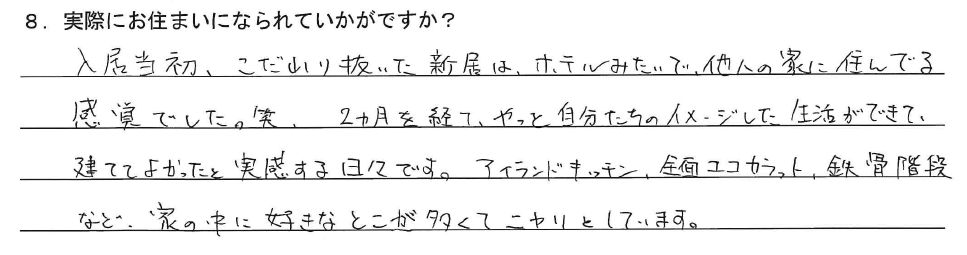 8. 実際にお住まいになられていかがですか？
入居当初、こだわり抜いた新居は、ホテルみたいで、他人の家に住んでる
感覚でした。笑、 2カ月を経て、やっと自分たちのイメージした生活ができて、
建ててよかったと実感する日々です。アイランドキッチン、全面エコカラット、鉄骨階段
など、家の中に好きなとこが多くてニヤリとしています。